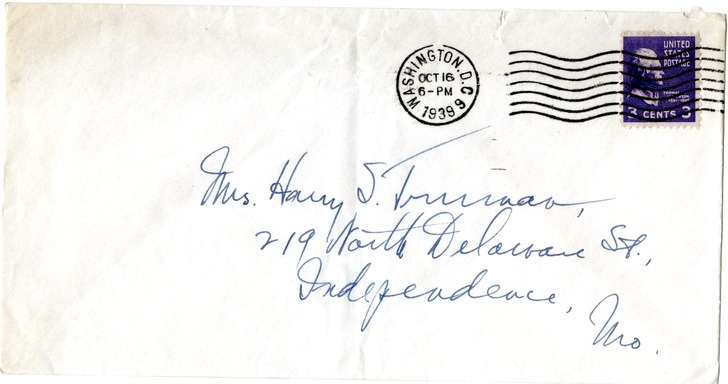 WASHINGTON, D.C.
OCT 16
6-PM
1939
9
UNITED
STATES
POSTAGE
THOMAS
3 CENTS 3
Mrs. Harry S. Truman,
219 North Delaware St.,
Independence,
Mo.